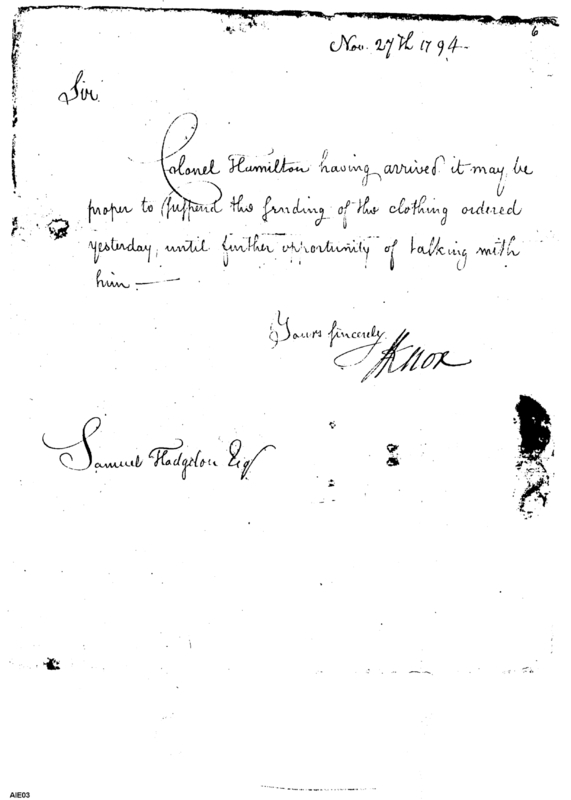 6
Nov. 27th 1794.
Sir
Colonel Hamilton having arrived it may be
proper to suspend the sending of the clothing ordered
yesterday, until further opportunity of talking with
him —
Yours sincerely
HKnox
Samuel Hodgdon Esq
AIE03